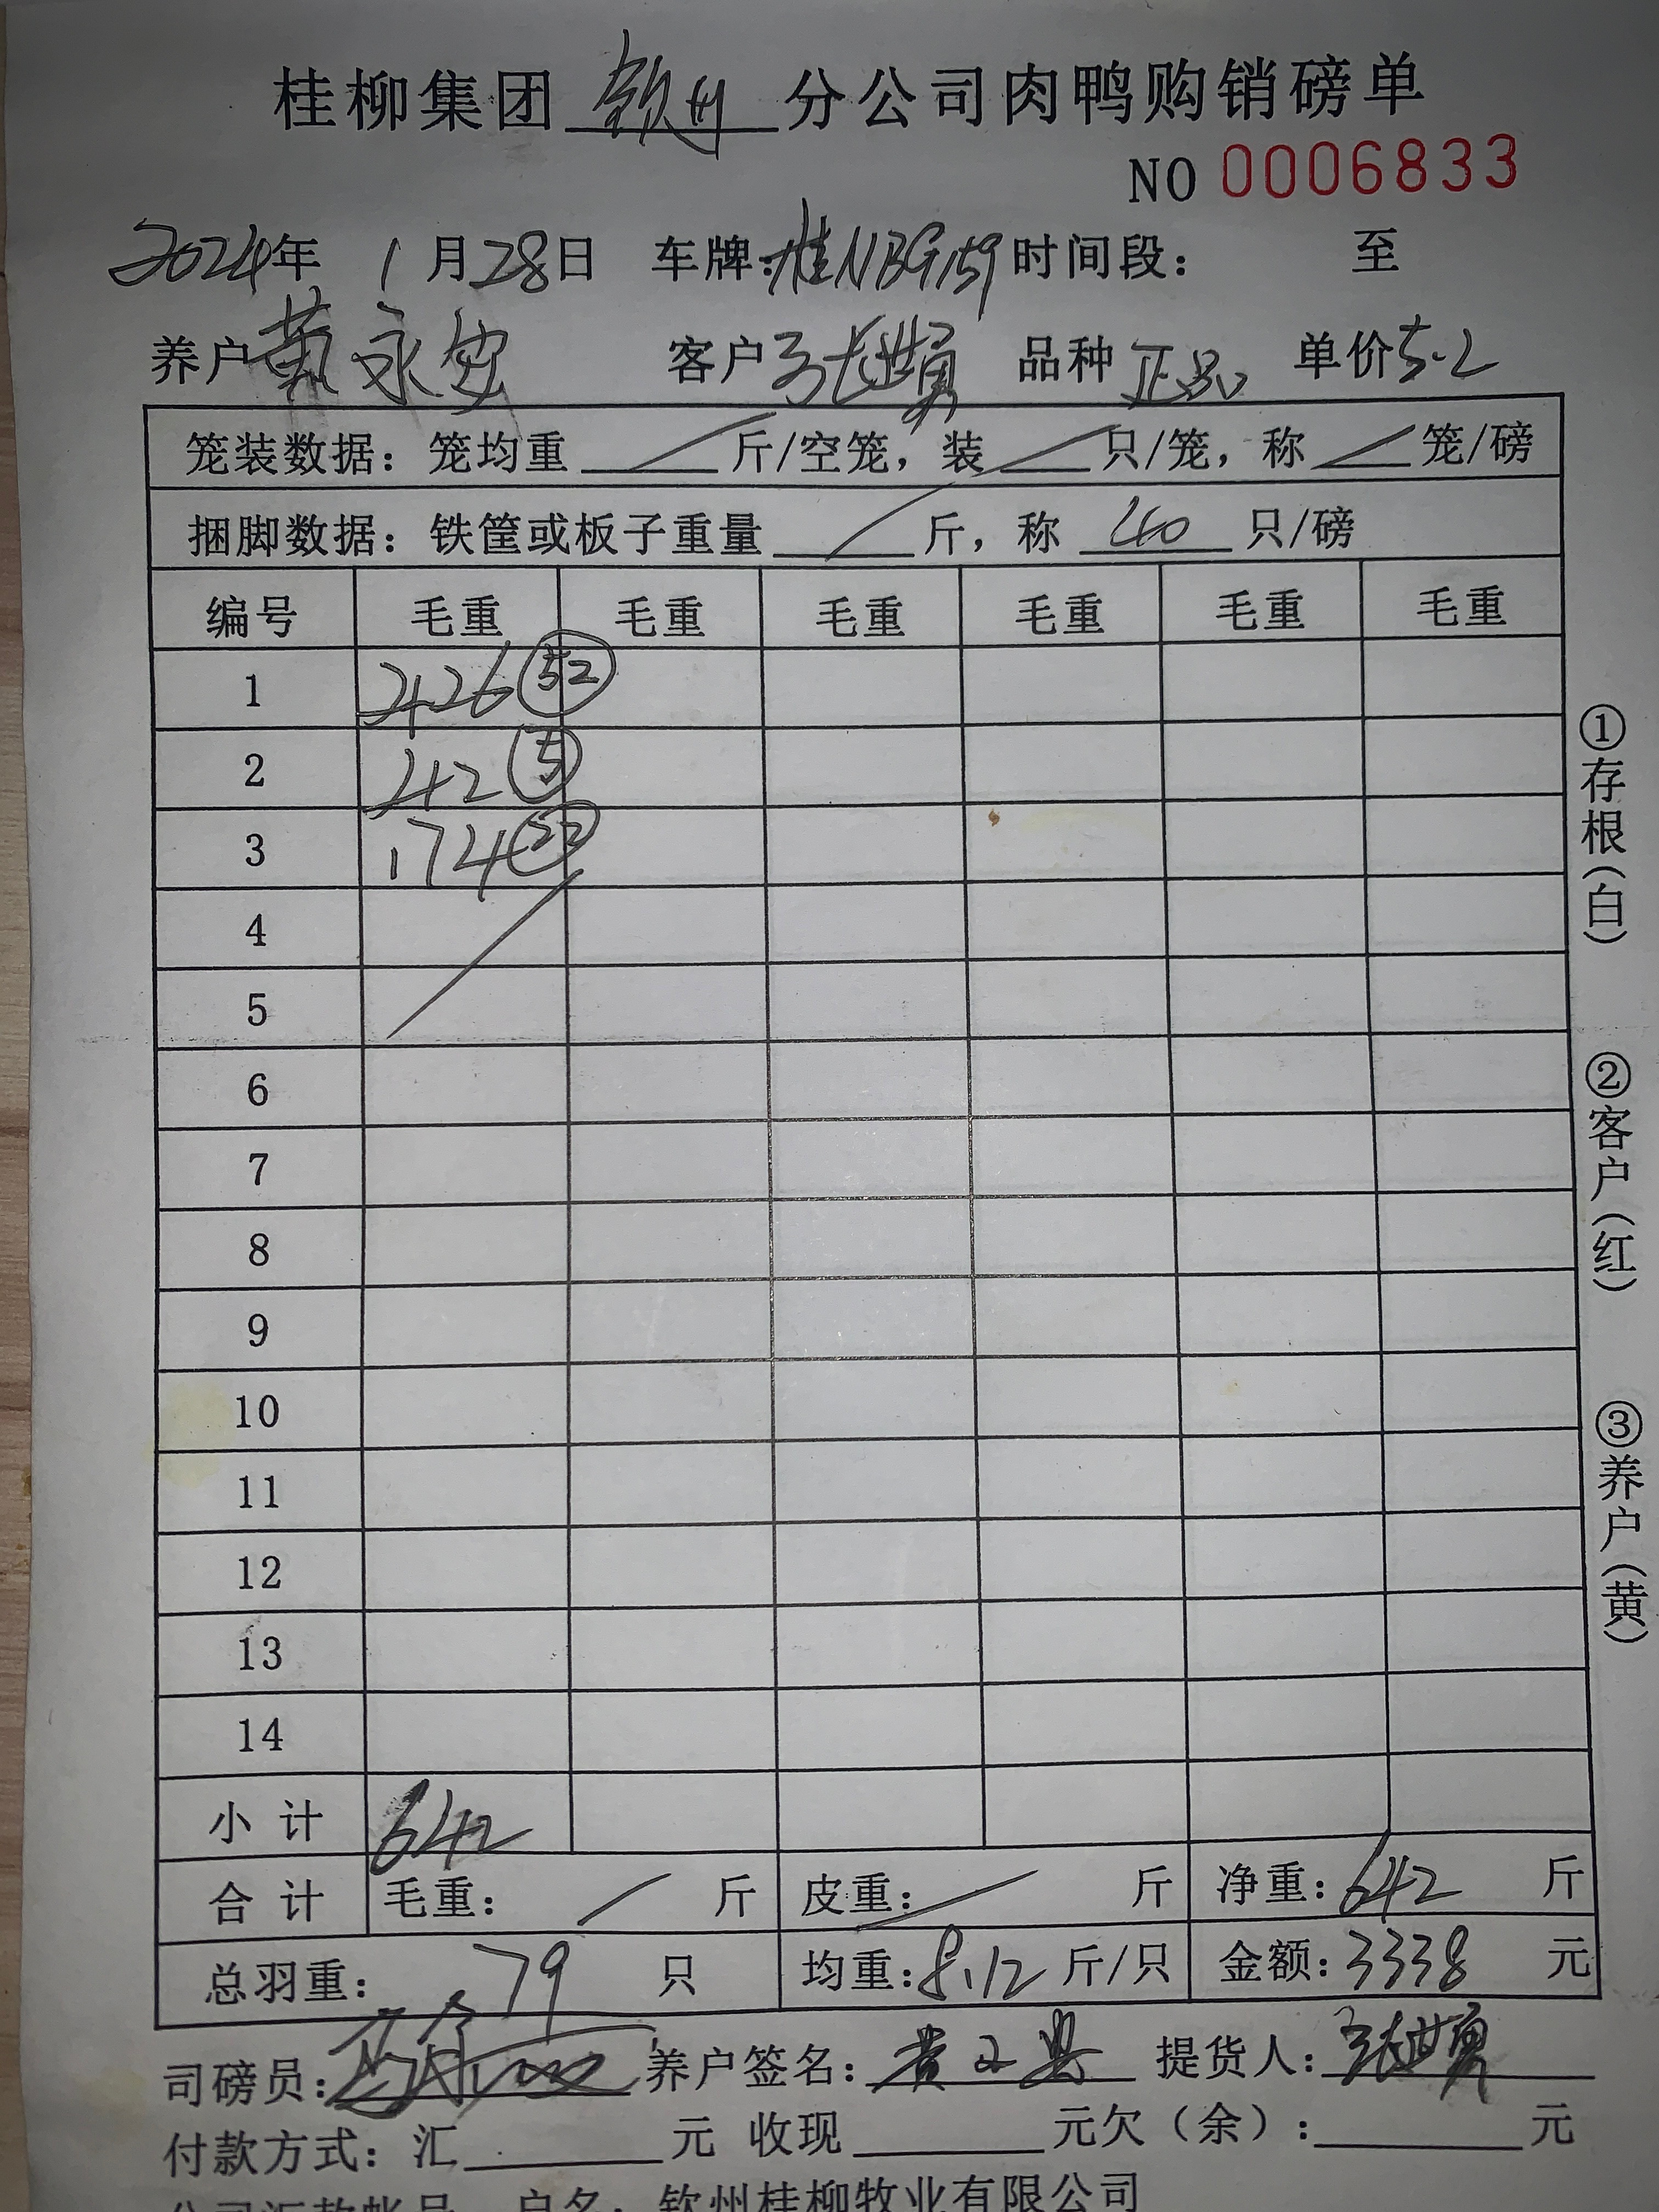 桂柳集团 钦州 分公司肉鸭购销磅单
NO 0006833
2024年 1月28日 车牌:桂NBG159 时间段: 至
养户 黄永安 客户 张世勇 品种 正品 单价5.2
笼装数据: 笼均重 斤/空笼, 装 只/笼, 称 笼/磅
捆脚数据: 铁筐或板子重量 斤, 称 40 只/磅
编号 毛重 毛重 毛重 毛重 毛重 毛重
1 426 52
2 42 5
3 174 22
4
5
6
7
8
9
10
11
12
13
14
小计 642
合计 毛重: 斤 皮重: 斤 净重: 642 斤
总羽重: 79 只 均重: 8.12 斤/只 金额: 3338 元
司磅员: 养户签名: 提货人: 张世勇
付款方式: 汇 元 收现 元欠(余): 元
公司汇款帐号 户名: 钦州桂柳牧业有限公司
①存根(白)
②客户(红)
③养户(黄)